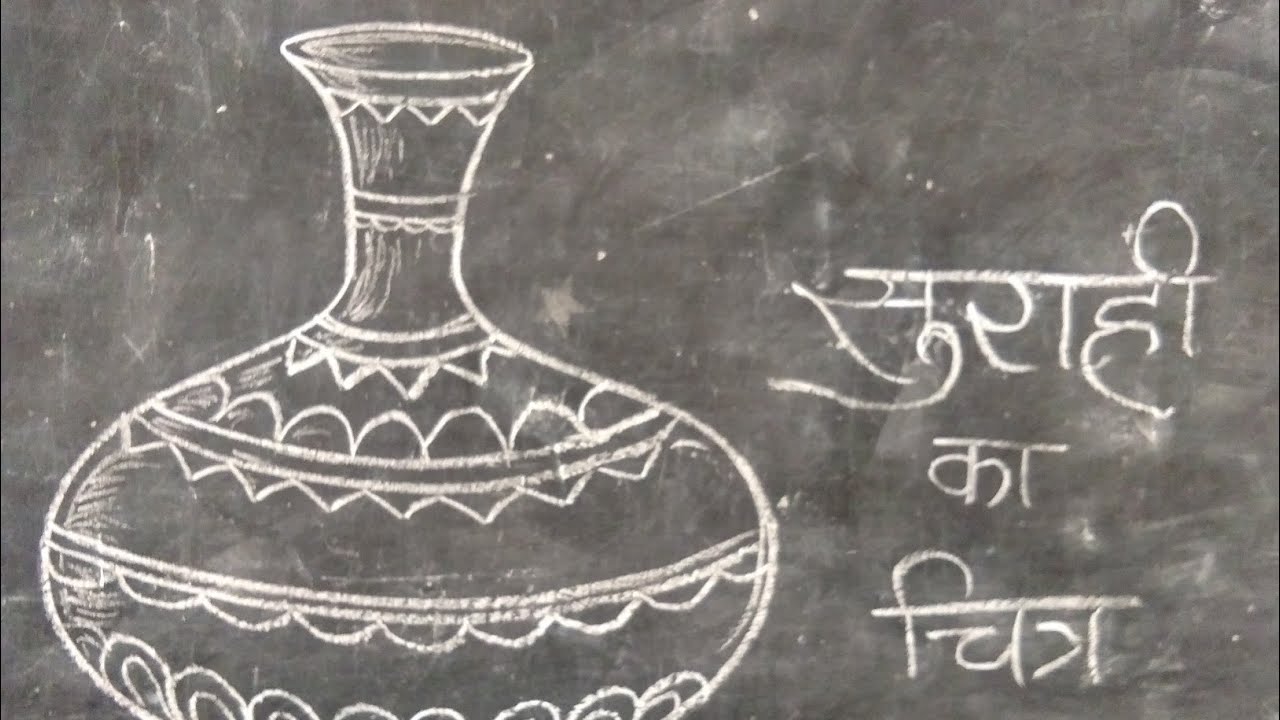 सुराही
का
चित्र